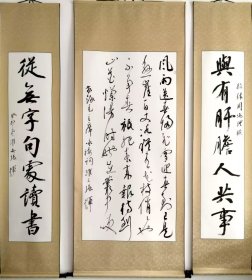 與有肝膽人共事
風雨送春歸飛雪迎春到已是
懸崖百丈冰猶有花枝俏俏
也不爭春只把春來報待到
山花爛漫時她在叢中笑
毛主席詠梅詞
從無字句處讀書